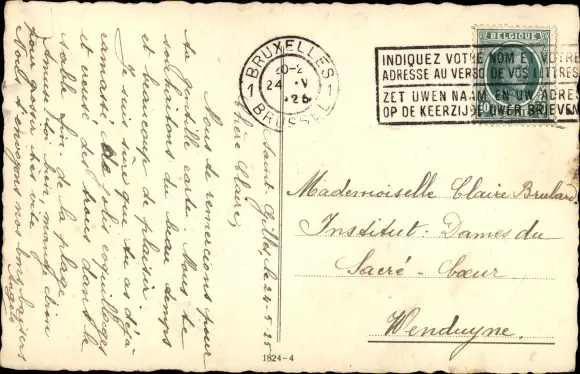 Saint-Gilles, le 24-5-25
Chère Claire,
Nous te remercions pour
ta gentille carte. Nous te
souhaitons du beau temps
et beaucoup de plaisir.
Je suis sûre que tu as déjà
ramassé de jolis coquillages
et creusé des trous dans le
sable fin de la plage.
Amuse-toi bien, mange bien
pour grossir très vite.
Nous t'envoyons nos bons baisers
BRUXELLES
1 20-2 1
24 V
25
BRUSSEL
BELGIQUE
INDIQUEZ VOTRE NOM ET VOTRE
ADRESSE AU VERSO DE VOS LETTRES
ZET UWEN NAAM EN UW ADRES
OP DE KEERZIJDE UWER BRIEVEN
Mademoiselle Claire Brulard
Institut: Dames du
Sacré-Cœur
Wenduyne.
1824-4